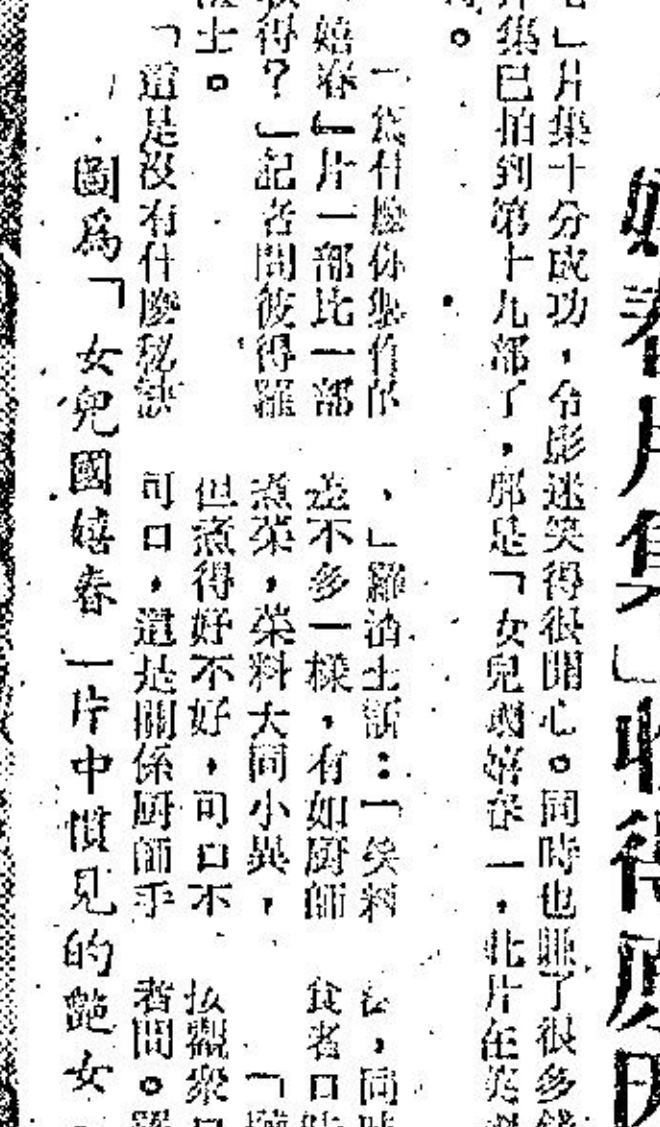 嬉春片集」收得原因
」片集十分成功，令影迷笑得很開心。同時也賺了很多錢
片集已拍到第十九部了，那是「女兒國嬉春」，此片在英
。
「為什麼你製作的
嬉春」片一部比一部
得？」記者問彼得羅
士。
「還是沒有什麼秘訣
，」羅渣士話：「笑料
差不多一樣，有如廚師
煮菜，菜料大同小異，
但煮得好不好，可口不
可口，還是關係廚師手
，同
食者口味
「
按觀眾口
者問。羅
圖為「女兒國嬉春」片中慣見的艷女